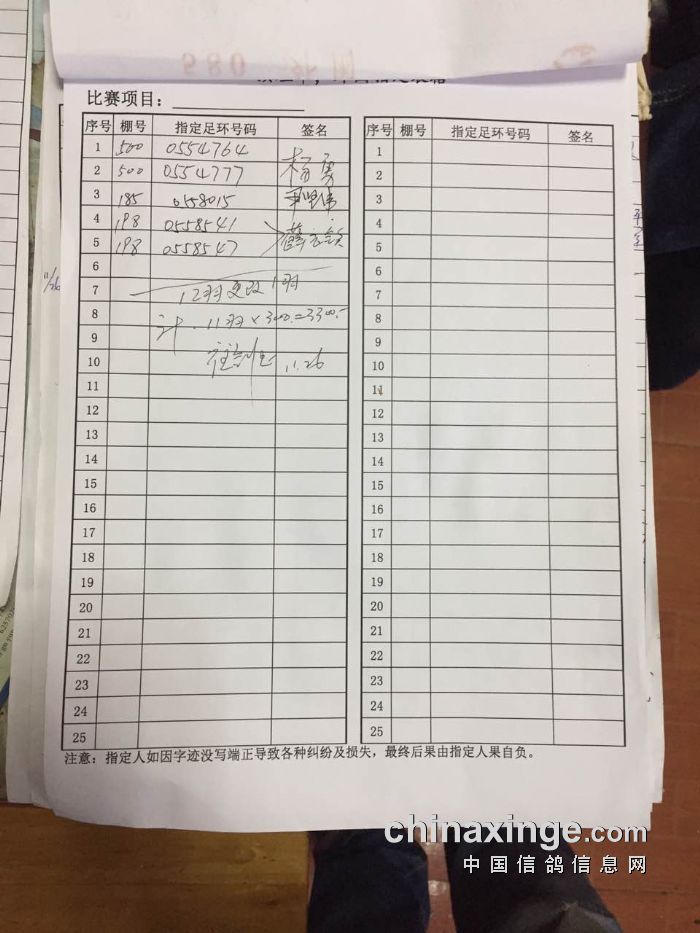 比赛项目：
序号 棚号 指定足环号码 签名
1 500 0554764
2 500 0554777 杨勇
3 185 0558015
4 198 0558541
5 198 0558547
6
7 12羽更改1羽
8 计：11羽×300.=3300.-
9
10 11.26
11
12
13
14
15
16
17
18
19
20
21
22
23
24
25
序号 棚号 指定足环号码 签名
1
2
3
4
5
6
7
8
9
10
11
12
13
14
15
16
17
18
19
20
21
22
23
24
25
注意：指定人如因字迹没写端正导致各种纠纷及损失，最终后果由指定人果自负。
11/26
chinaxinge.com
中国信鸽信息网